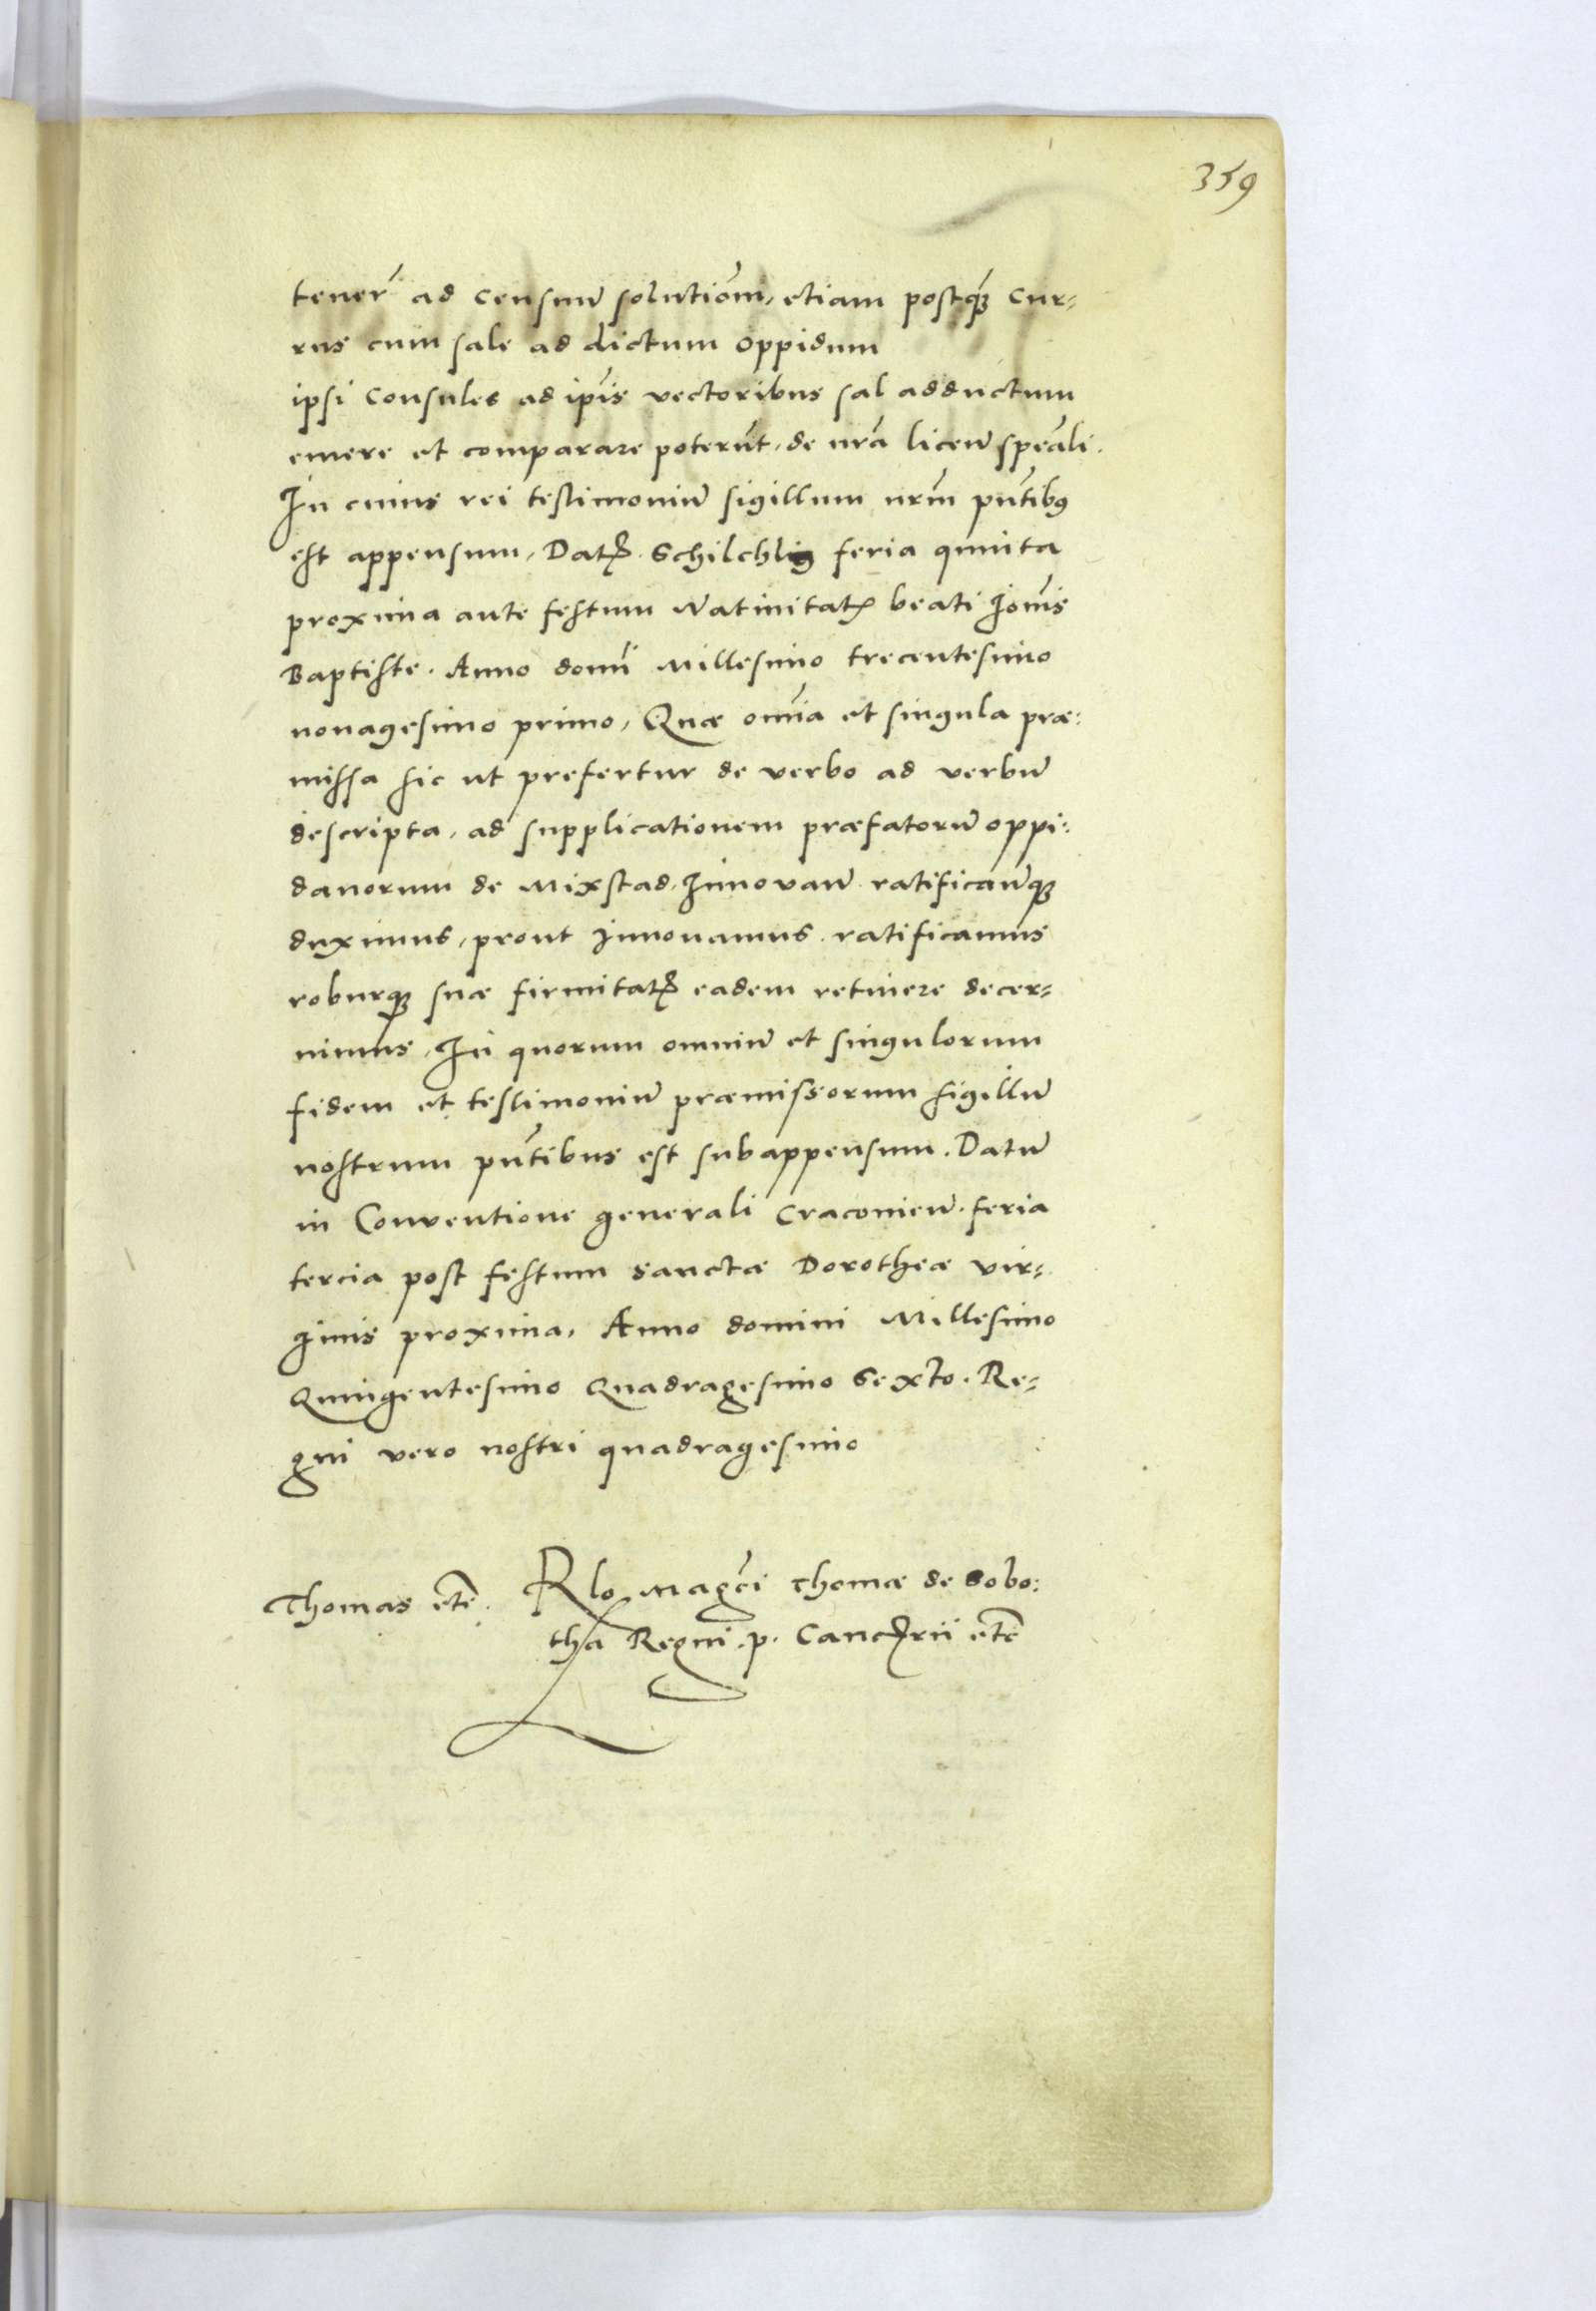 359
tener̃ ad censum̃ solutiõm, etiam postq̃ꝫ cur-
rus cum sale ad dictum oppidum
ipsi consules ad ip̃is vectoribus sal adductum
emere et comparare poterũt, de nr̃a licen̄ speãli.
In cuius rei testimoniũ sigillum nrm̃ pñtibꝯ
est appensum, Datꝭ Schilchlig feria quinta
proxima ante festum Natiuitatꝭ beati Joñis
Baptiste. Anno domĩ Millesimo trecentesimo
nonagesimo primo, Quæ omĩa et singula præ:
missa sic ut prefertur de verbo ad verbũ
descripta, ad supplicationem præfatorũ oppi:
danorum de Mixstad, Innouan̄ ratifican̄qꝫ
duximus, prout Innouamus. ratificamus
roburqꝫ suæ firmitatꝭ eadem retinere decer-
nimus, In quorum omniũ et singulorum
fidem et testimoniũ præmissorum sigillũ
nostrum pñtibus est subappensum. Datũ
in Conventione generali Craconien̄. feria
tercia post festum sanctæ Dorotheæ vir-
ginis proxima, Anno domini Millesimo
Quingentesimo Quadragesimo Sexto. Re-
gni vero nostri quadragesimo
Thomas etc̃. Rlo Magc̃i Thomæ de Sobo:
tha Regni .p. Cancꝭrii etc̃